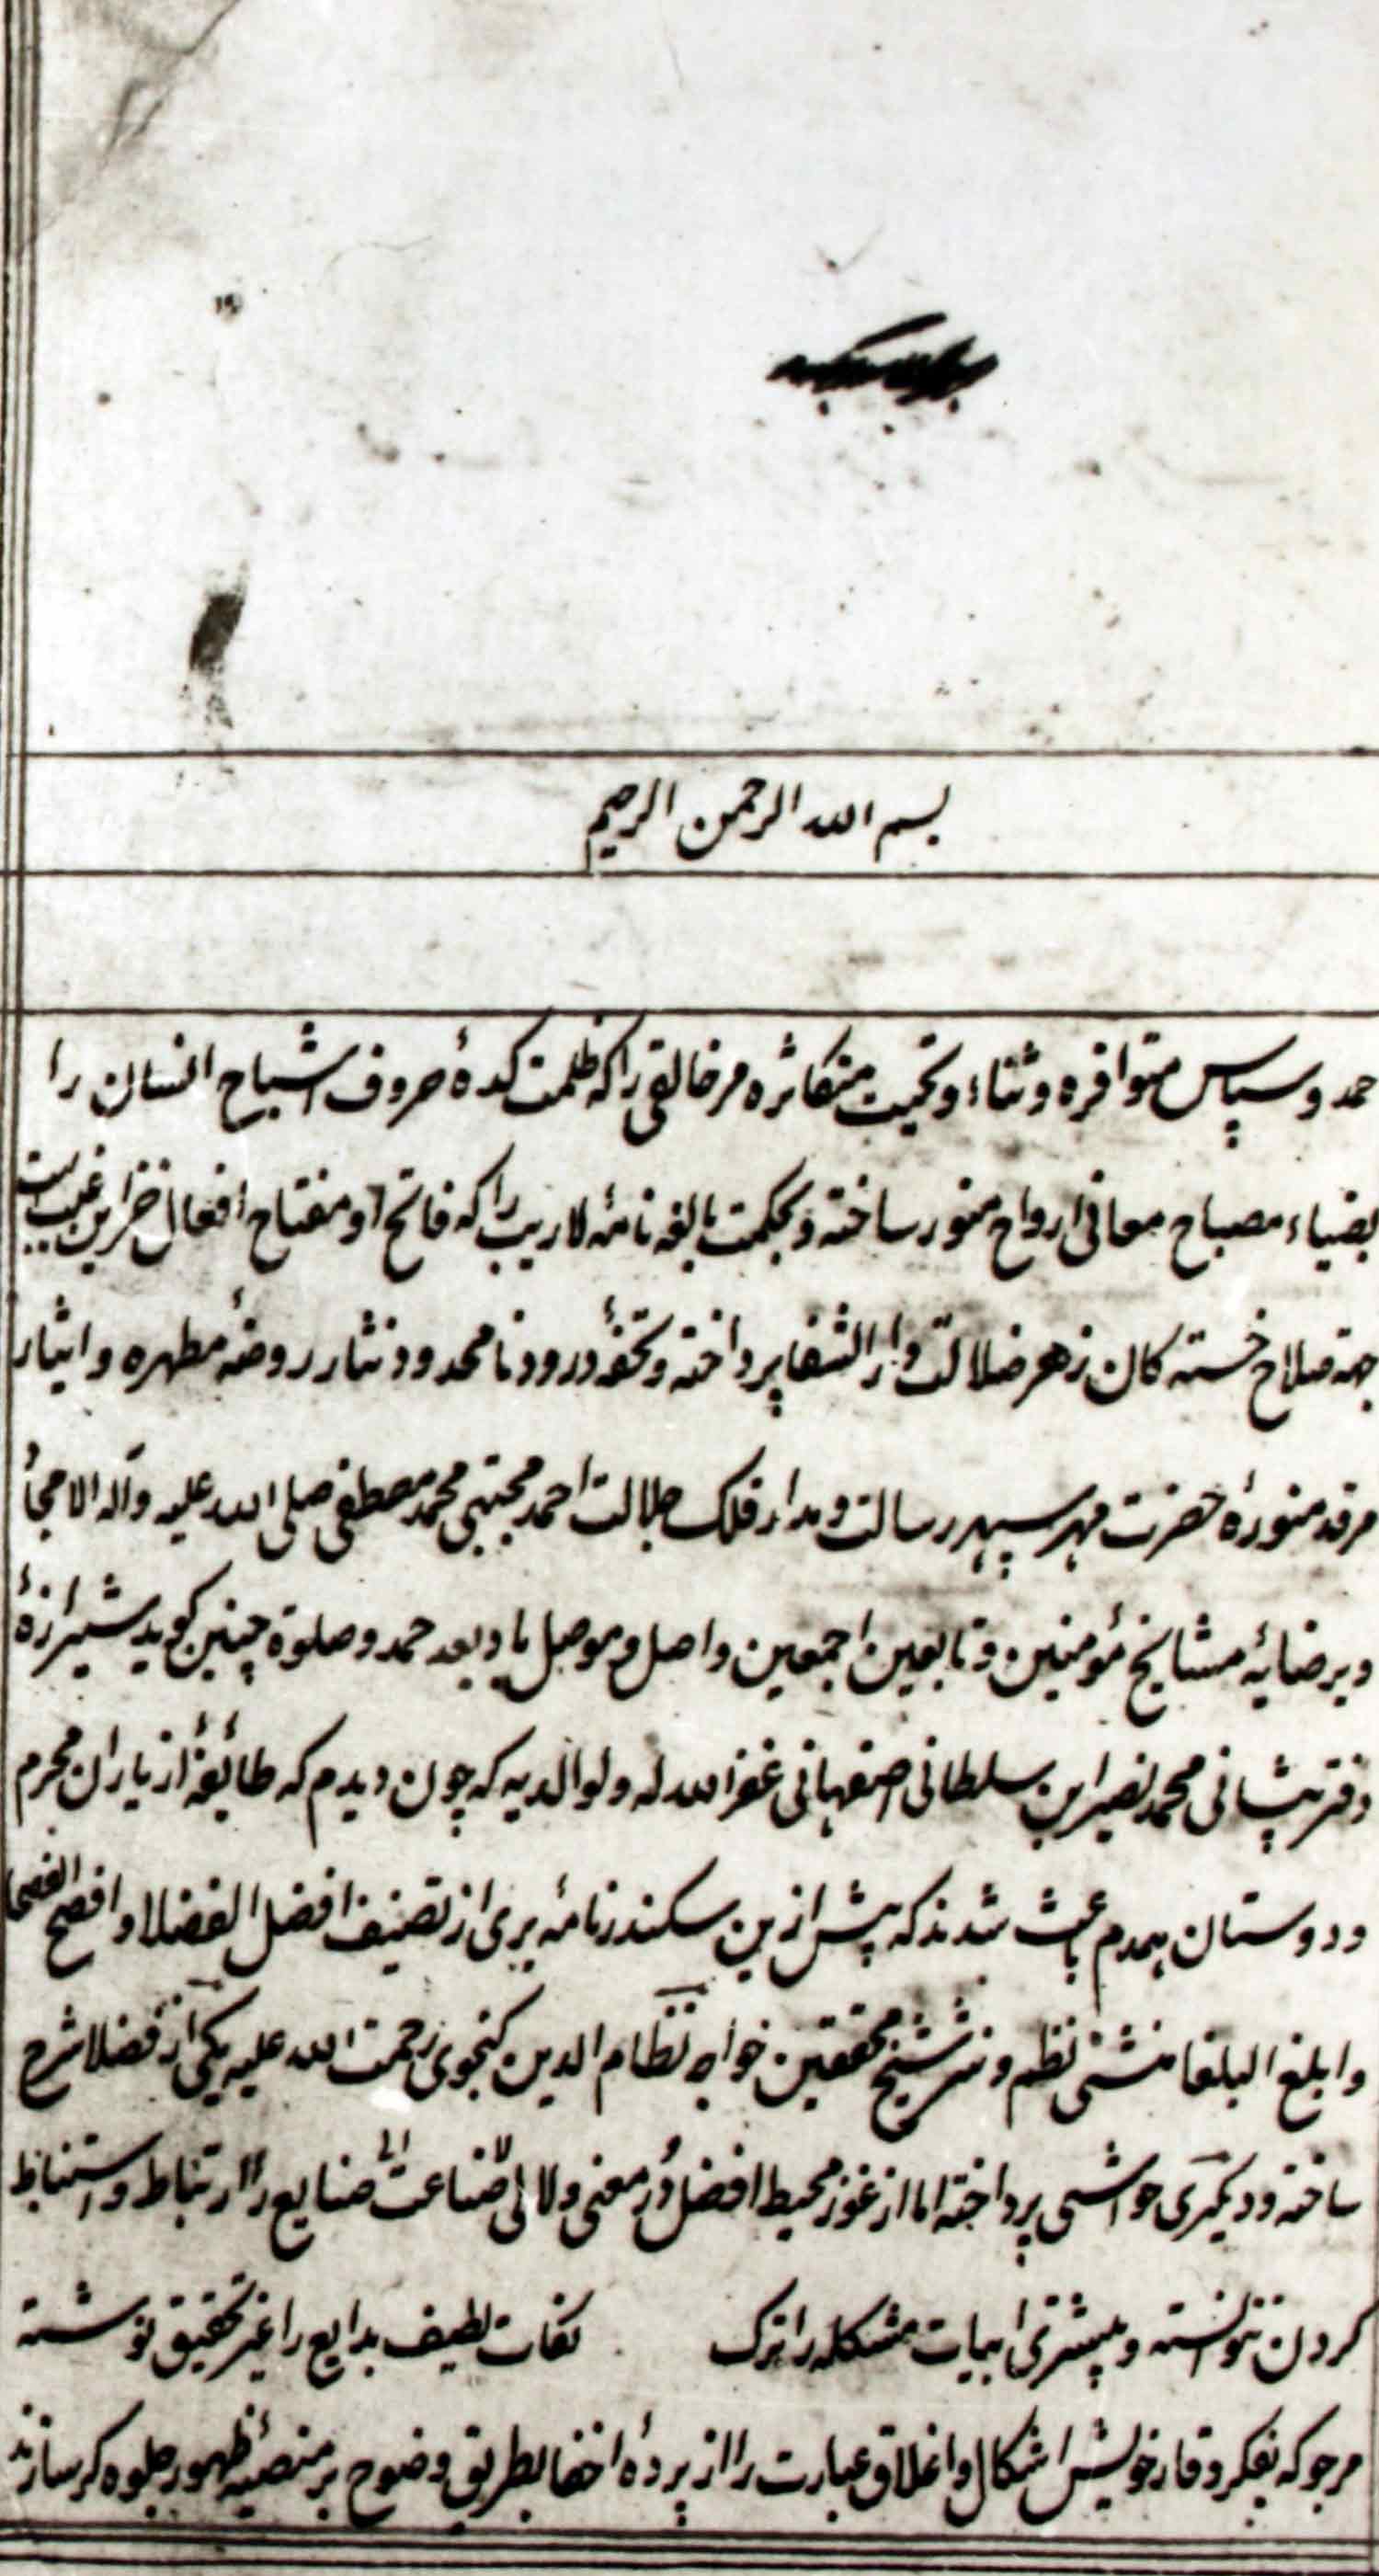 بسم الله الرحمن الرحیم
حمد و سپاس متوافره و ثناء و تحیت متکاثره مر خالقی را که ظلمت کدهٔ حروف اشباح انسان را
بضیاء مصباح معانی ارواح منور ساخته و بحکمت بالغه نامهٔ لاریب را که فاتح او مفتاح اقفال خزاین غیب است
جهة صلاح خستە کان زهر ضلالت دار الشفا پرداخته و تحفهٔ درود نامحدود نثار روضهٔ مطهره و ایثار
مرقد منورهٔ حضرت مهر سپهر رسالت و مدار فلک جلالت احمد مجتبی محمد مصطفی صلی الله علیه وآله الامجاد
و برضایهٔ مشایخ مؤمنین و تابعین اجمعین واصل و موصل باد و بعد حمد و صلوة چنین کوید شیرازهٔ
دفتر پشانی محمد نصیر ابن سلطانی اصفهانی غفر الله له ولوالدیه که چون دیدم که طائفهٔ از یاران محرم
و دوستان همدم باعث شدند که پیش ازین سکندرنامهٔ بری از تصنیف افضل الفضلا و افصح الفصحا
و ابلغ البلغا منشی نظم و نثر شیخ محققین خواجه نظام الدین کنجوی رحمت الله علیه یکی از فضلا شرح
ساخته و دیکری حواشی پرداخته اما از غوز محیط افضل دُر معنی و لالی صناعت صنایع را ارتباط و استنباط
کردن نتوانسته و پیشتری ابیات مشکله را ترک نکات لطیف بدایع را غیر تحقیق نوشته
مرجو که بفکر وقار خویش اشکال و اغلاق عبارت را از پردهٔ اخفا بطریق وضوح بر منصهٔ ظهور جلوه کر سازند